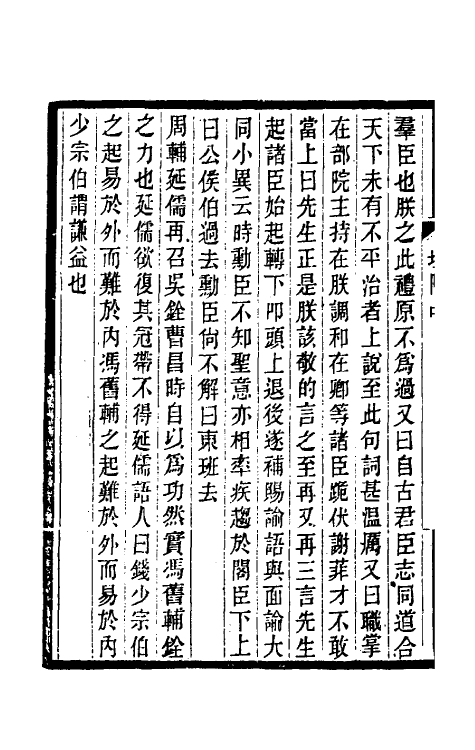 羣臣也朕之此禮原不爲過又曰自古君臣志同道合
天下未有不平治者上說至此句詞甚溫厲又曰職掌
在部院主持在朕調和在卿等諸臣跪伏謝菲才不敢
當上曰先生正是朕該敬的言之至再又再三言先生
起諸臣始起轉下叩頭上退後遂補賜諭語與面諭大
同小異云時勳臣不知聖意亦相率疾趨於閣臣下上
曰公侯伯過去勳臣尙不解曰東班去
周輔延儒再召吳銓曹昌時自以爲功然實馮舊輔銓
之力也延儒欲復其冠帶不得延儒語人曰錢少宗伯
之起易於外而難於內馮舊輔之起難於外而易於內
少宗伯謂謙益也